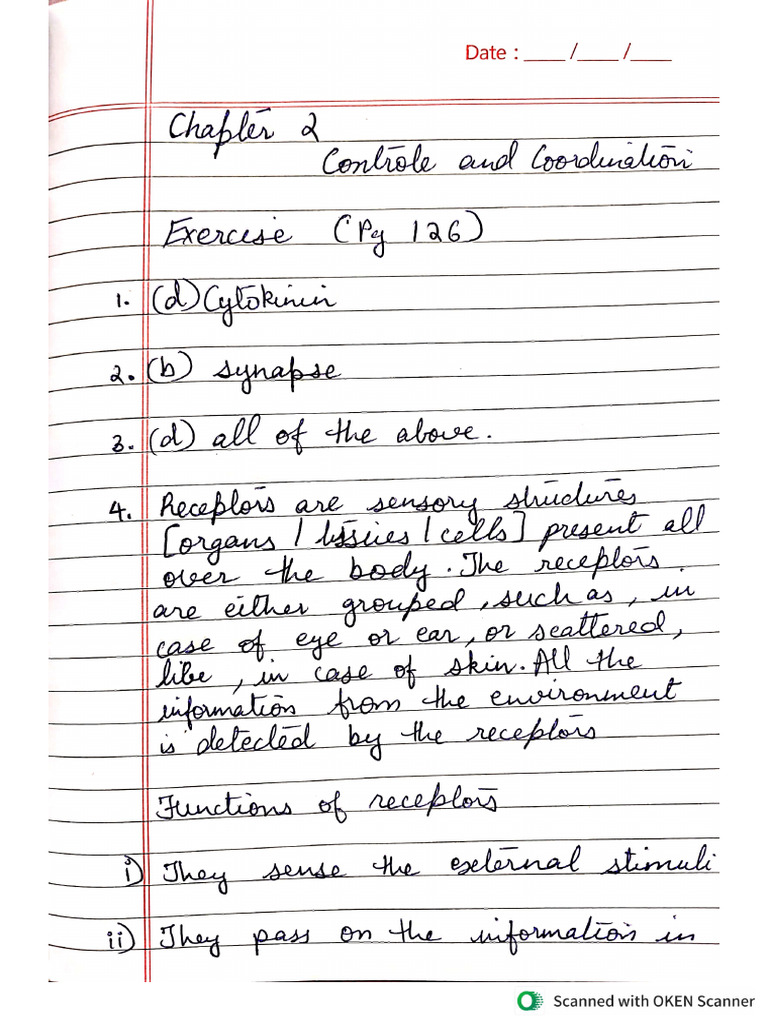 Date : ____ /____ /____
Chapter 2
Controle and Coordination
Exercise (Pg 126)
1. (d) Cytokinin
2. (b) synapse
3. (d) all of the above.
4. Receptors are sensory structures
[organs / tissues / cells] present all
over the body. The receptors
are either grouped, such as, in
case of eye or ear, or scattered,
like, in case of skin. All the
information from the environment
is detected by the receptors
Functions of receptors
i) They sense the external stimuli
ii) They pass on the information in
Scanned with OKEN Scanner